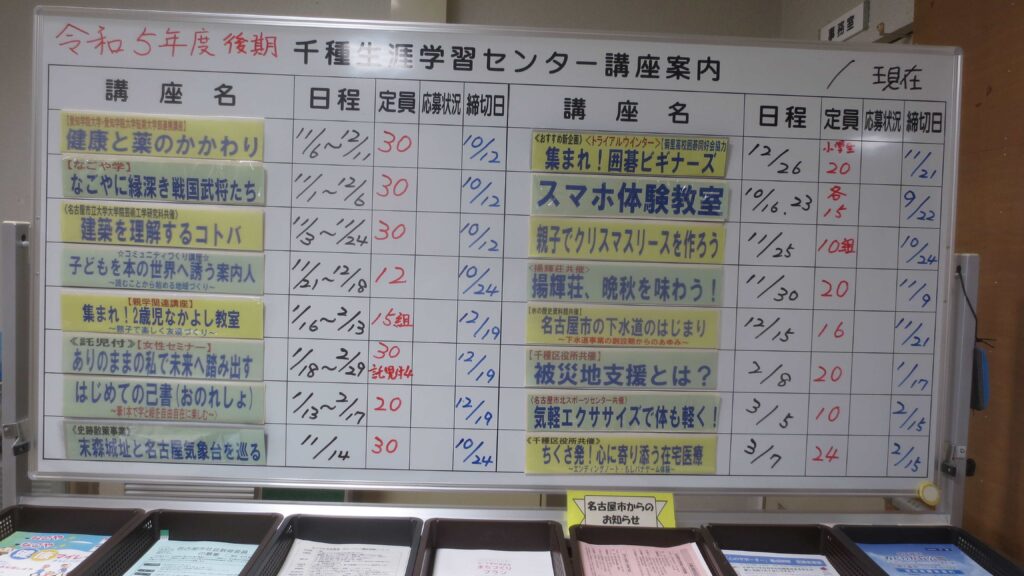 事務室
令和5年度後期 千種生涯学習センター講座案内 / 現在
講座名 日程 定員 応募状況 締切日
【愛知学院大学・愛知学院大学短期大学部連携講座】
健康と薬のかかわり 11/6~12/11 30 10/12
【なごや学】
なごやに縁深き戦国武将たち 11/1~12/6 30 10/12
《名古屋市立大学大学院芸術工学研究科共催》
建築を理解するコトバ 11/3~11/24 30 10/12
☆コミュニティづくり講座☆
子どもを本の世界へ誘う案内人 11/21~12/18 12 10/24
~読むことから始める地域づくり~
【親学関連講座】
集まれ!2歳児なかよし教室 1/16~2/13 15組 12/19
~親子で楽しく友達づくり~
≪託児付≫【女性セミナー】
ありのままの私で未来へ踏み出す 1/18~2/29 30 託児付4 12/19
はじめての己書(おのれしょ) 1/13~2/17 20 12/19
~筆1本で字と絵を自由自在に楽しむ~
《史跡散策事業》
末森城址と名古屋気象台を巡る 11/14 30 10/24
講座名 日程 定員 応募状況 締切日
《おすすめ新企画》《トライアルウインター》【菊里高校囲碁同好会協力】
集まれ!囲碁ビギナーズ 12/26 小学生20 11/21
スマホ体験教室 10/16.23 各15 9/22
親子でクリスマスリースを作ろう 11/25 10組 10/24
《揚輝荘共催》
揚輝荘、晩秋を味わう! 11/30 20 11/9
【水の歴史資料館共催】
名古屋市の下水道のはじまり 12/15 16 11/21
~下水道事業の創設期からのあゆみ~
【千種区役所共催】
被災地支援とは? 2/8 20 1/17
【名古屋市北スポーツセンター共催】
気軽エクササイズで体も軽く! 3/5 10 2/15
《千種区役所共催》
ちくさ発!心に寄り添う在宅医療 3/7 24 2/15
~エンディングノート・もしバナゲーム体験~
名古屋市からの
お知らせ